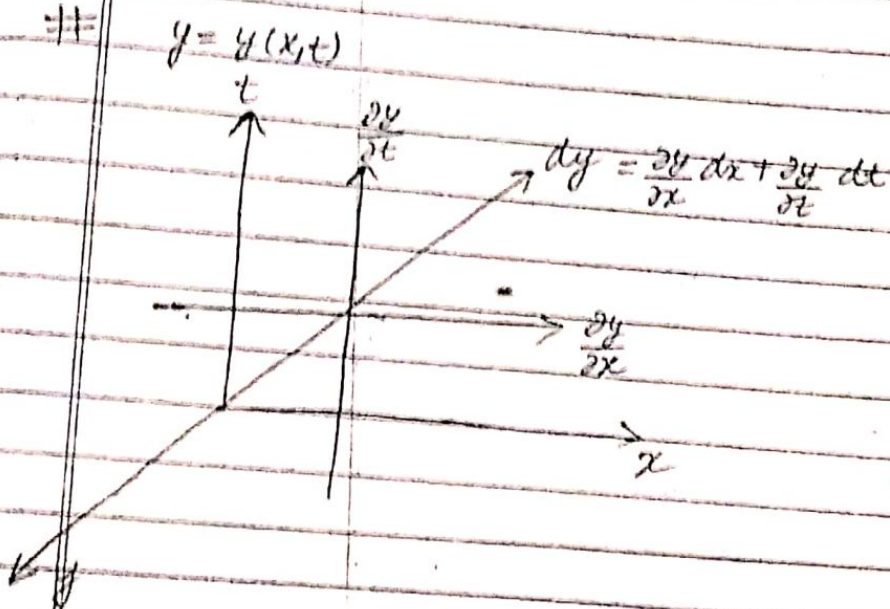 # y = y(x,t)
t
∂y/∂t
dy = ∂y/∂x dx + ∂y/∂t dt
∂y/∂x
x
y